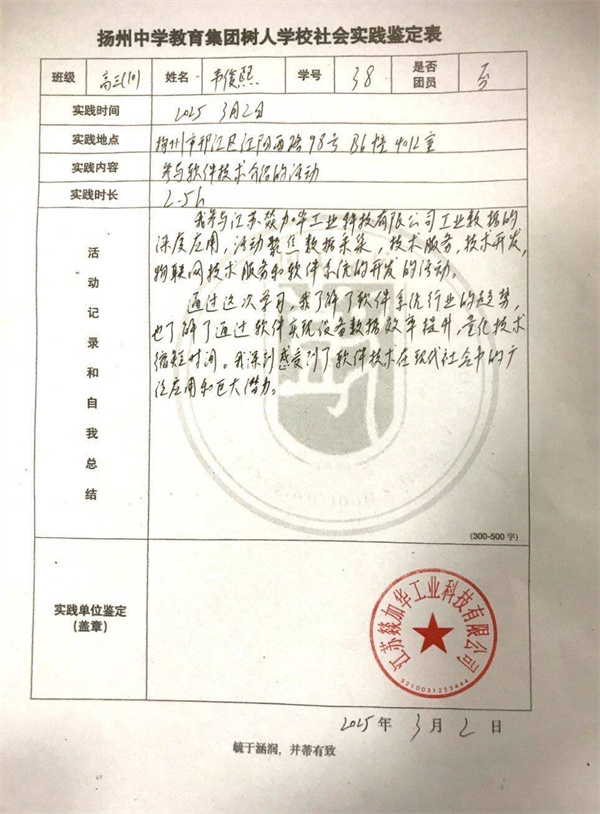 扬州中学教育集团树人学校社会实践鉴定表
班级 高三(10) 姓名 韦俊熙 学号 38 是否团员 否
实践时间 2025 3月2日
实践地点 扬州市邗江区江阳西路98号 B6幢 4012室
实践内容 参与软件技术介绍的活动
实践时长 2.5h
活动记录和自我总结
我参与江苏燚加华工业科技有限公司工业数据的
深度应用,活动聚焦数据采采,技术服务,技术开发,
物联网技术服务和软件系统的开发的活动。
通过这次学习,我了解了软件系统行业的趋势,
也了解了通过软件实现设备数据效率提升,量化技术
缩短时间。我深刻感受到了软件技术在现代社会中的广
泛应用和巨大潜力。
(300-500 字)
实践单位鉴定
(盖章)
江苏燚加华工业科技有限公司
3210031223444
2025 年 3 月 2 日
毓于涵润,并蒂有致